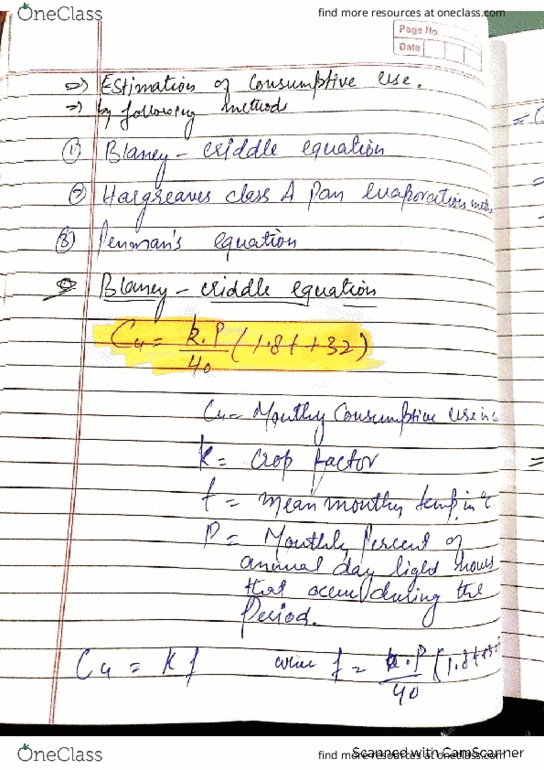 OneClass
find more resources at oneclass.com
Page No.
Date
=> Estimation of Consumptive use.
=> by following methods
① Blaney - criddle equation
② Hargreaves class A Pan evaporation
③ Penman's equation
Blaney - criddle equation
Cu = k.P/40 (1.8t + 32)
Cu = Monthly Consumptive use in
k = Crop factor
t = mean monthly temp. in °C
P = Monthly Percent of
annual day light hours
that occur during the
Period.
Cu = kf where f = k.P/40 (1.8t
OneClass
find more resources at oneclass.com
Scanned with CamScanner